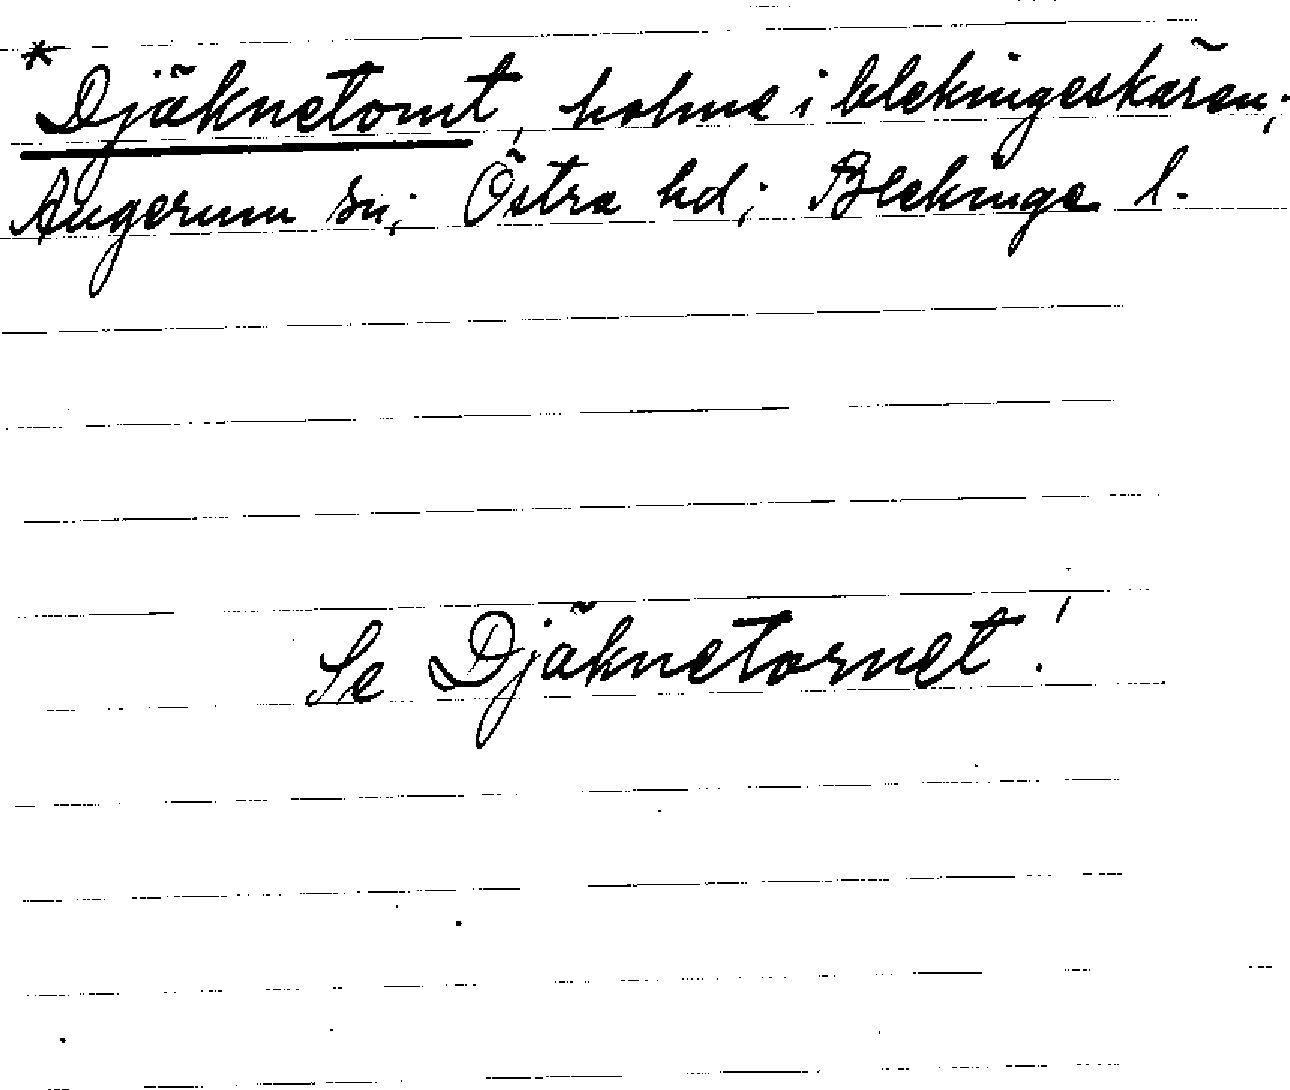 *Djäknetomt, holme i blekingeskären;
Augerum sn; Östra hd; Blekinge l.
Se Djäknetornet!